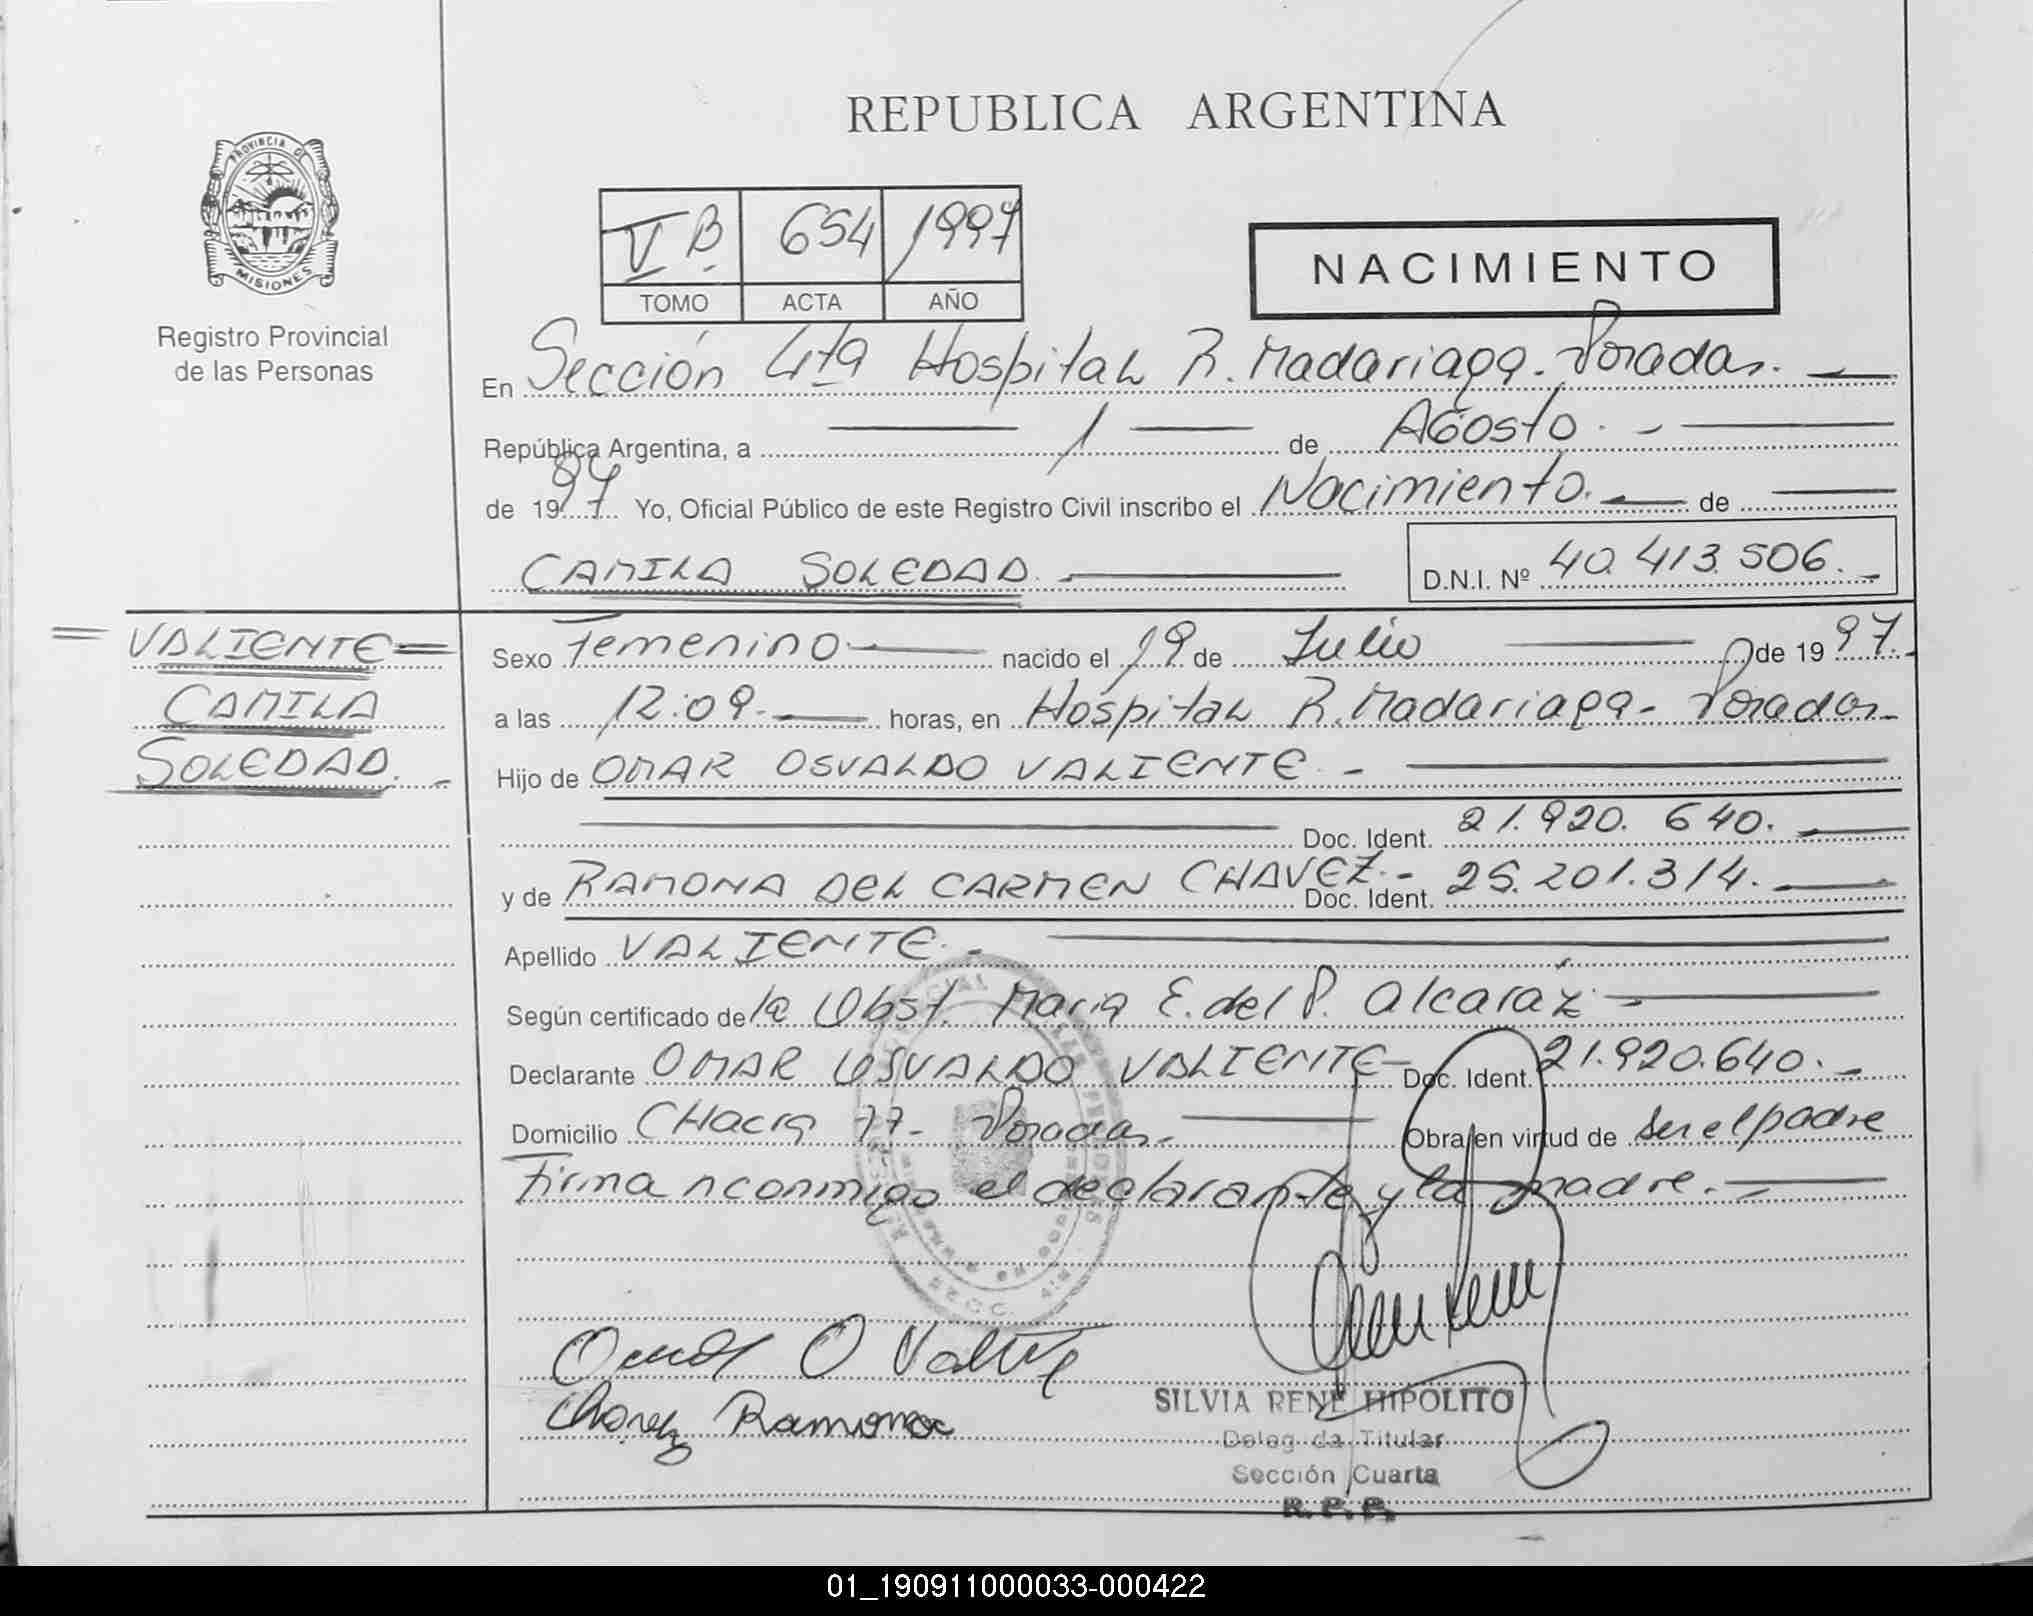 REPUBLICA ARGENTINA
PROVINCIA DE
MISIONES
Registro Provincial
de las Personas
V B. 654 1997
TOMO ACTA AÑO
NACIMIENTO
En Sección 4ta Hospital R. Madariaga. Posadas.
República Argentina, a 1 de Agosto.
de 1997 Yo, Oficial Público de este Registro Civil inscribo el Nacimiento. de
CAMILA SOLEDAD.
D.N.I. Nº 40.413.506.
= VALIENTE =
CAMILA
SOLEDAD.
Sexo Femenino nacido el 19 de Julio de 1997.
a las 12:09. horas, en Hospital R. Madariaga - Posadas
Hijo de OMAR OSVALDO VALIENTE. -
Doc. Ident. 21.920.640.
y de RAMONA DEL CARMEN CHAVEZ. - Doc. Ident. 25.201.314.
Apellido VALIENTE. -
Según certificado de la Obst. Maria E. del P. Alcaráz
Declarante OMAR OSVALDO VALIENTE Doc. Ident. 21.920.640.
Domicilio CHacra 77- Posadas. Obra en virtud de ser el padre
Firman conmigo el declarante y la madre.
Omar O Valiente
Chavez Ramona
SILVIA RENE HIPOLITO
Delegada Titular
Sección Cuarta
R. P. P.
01_190911000033-000422